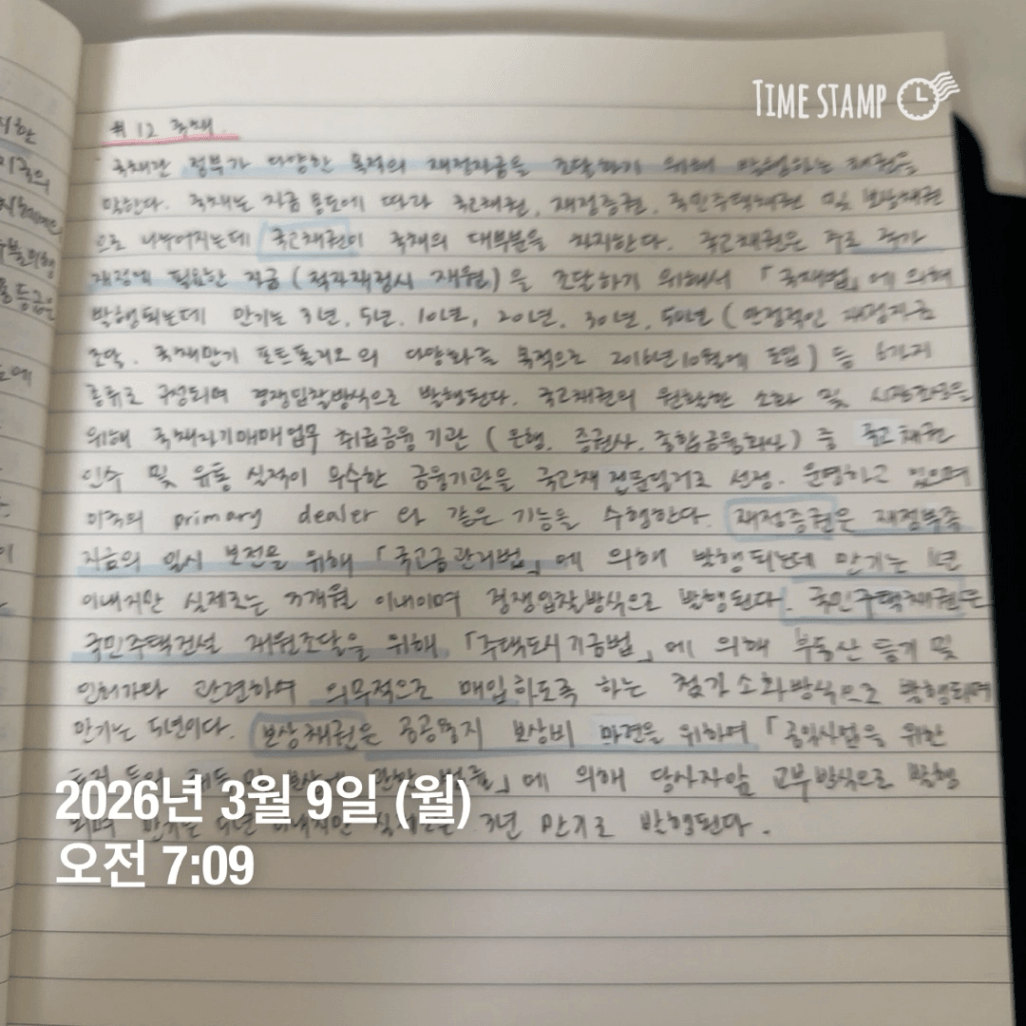 TIME STAMP
#12 국채.
국채란 정부가 다양한 목적의 재정자금을 조달하기 위해 발행하는 채권을
말한다. 국채는 자금 용도에 따라 국고채권, 재정증권, 국민주택채권 및 보상채권
으로 나누어지는데 국고채권이 국채의 대부분을 차지한다. 국고채권은 주로 국가
재정에 필요한 자금(적자재정시 재원)을 조달하기 위해서 「국채법」에 의해
발행되는데 만기는 3년, 5년, 10년, 20년, 30년, 50년(안정적인 재정자금
조달, 국채만기 포트폴리오의 다양화를 목적으로 2016년 10월에 도입) 등 6가지
종류로 구성되며 경쟁입찰방식으로 발행된다. 국고채권의 원활한 소화 및
위해 국채자기매매업무 취급금융기관(은행, 증권사, 종합금융회사) 중 국고채권
인수 및 유통 실적이 우수한 금융기관을 국고채전문딜러로 선정·운영하고 있으며
미국의 primary dealer 와 같은 기능을 수행한다. 재정증권은 재정부족
자금의 일시 보전을 위해 「국고금관리법」에 의해 발행되는데 만기는 1년
이내지만 실제로는 3개월 이내이며 경쟁입찰방식으로 발행된다. 국민주택채권은
국민주택건설 재원조달을 위해, 「주택도시기금법」에 의해 부동산 등기 및
인허가와 관련하여 의무적으로 매입하도록 하는 첨가소화방식으로 발행되며
만기는 5년이다. 보상채권은 공공용지 보상비 마련을 위하여 「공익사업을 위한
」에 의해 당사자앞 교부방식으로 발행
3년 만기로 발행된다.
2026년 3월 9일 (월)
오전 7:09